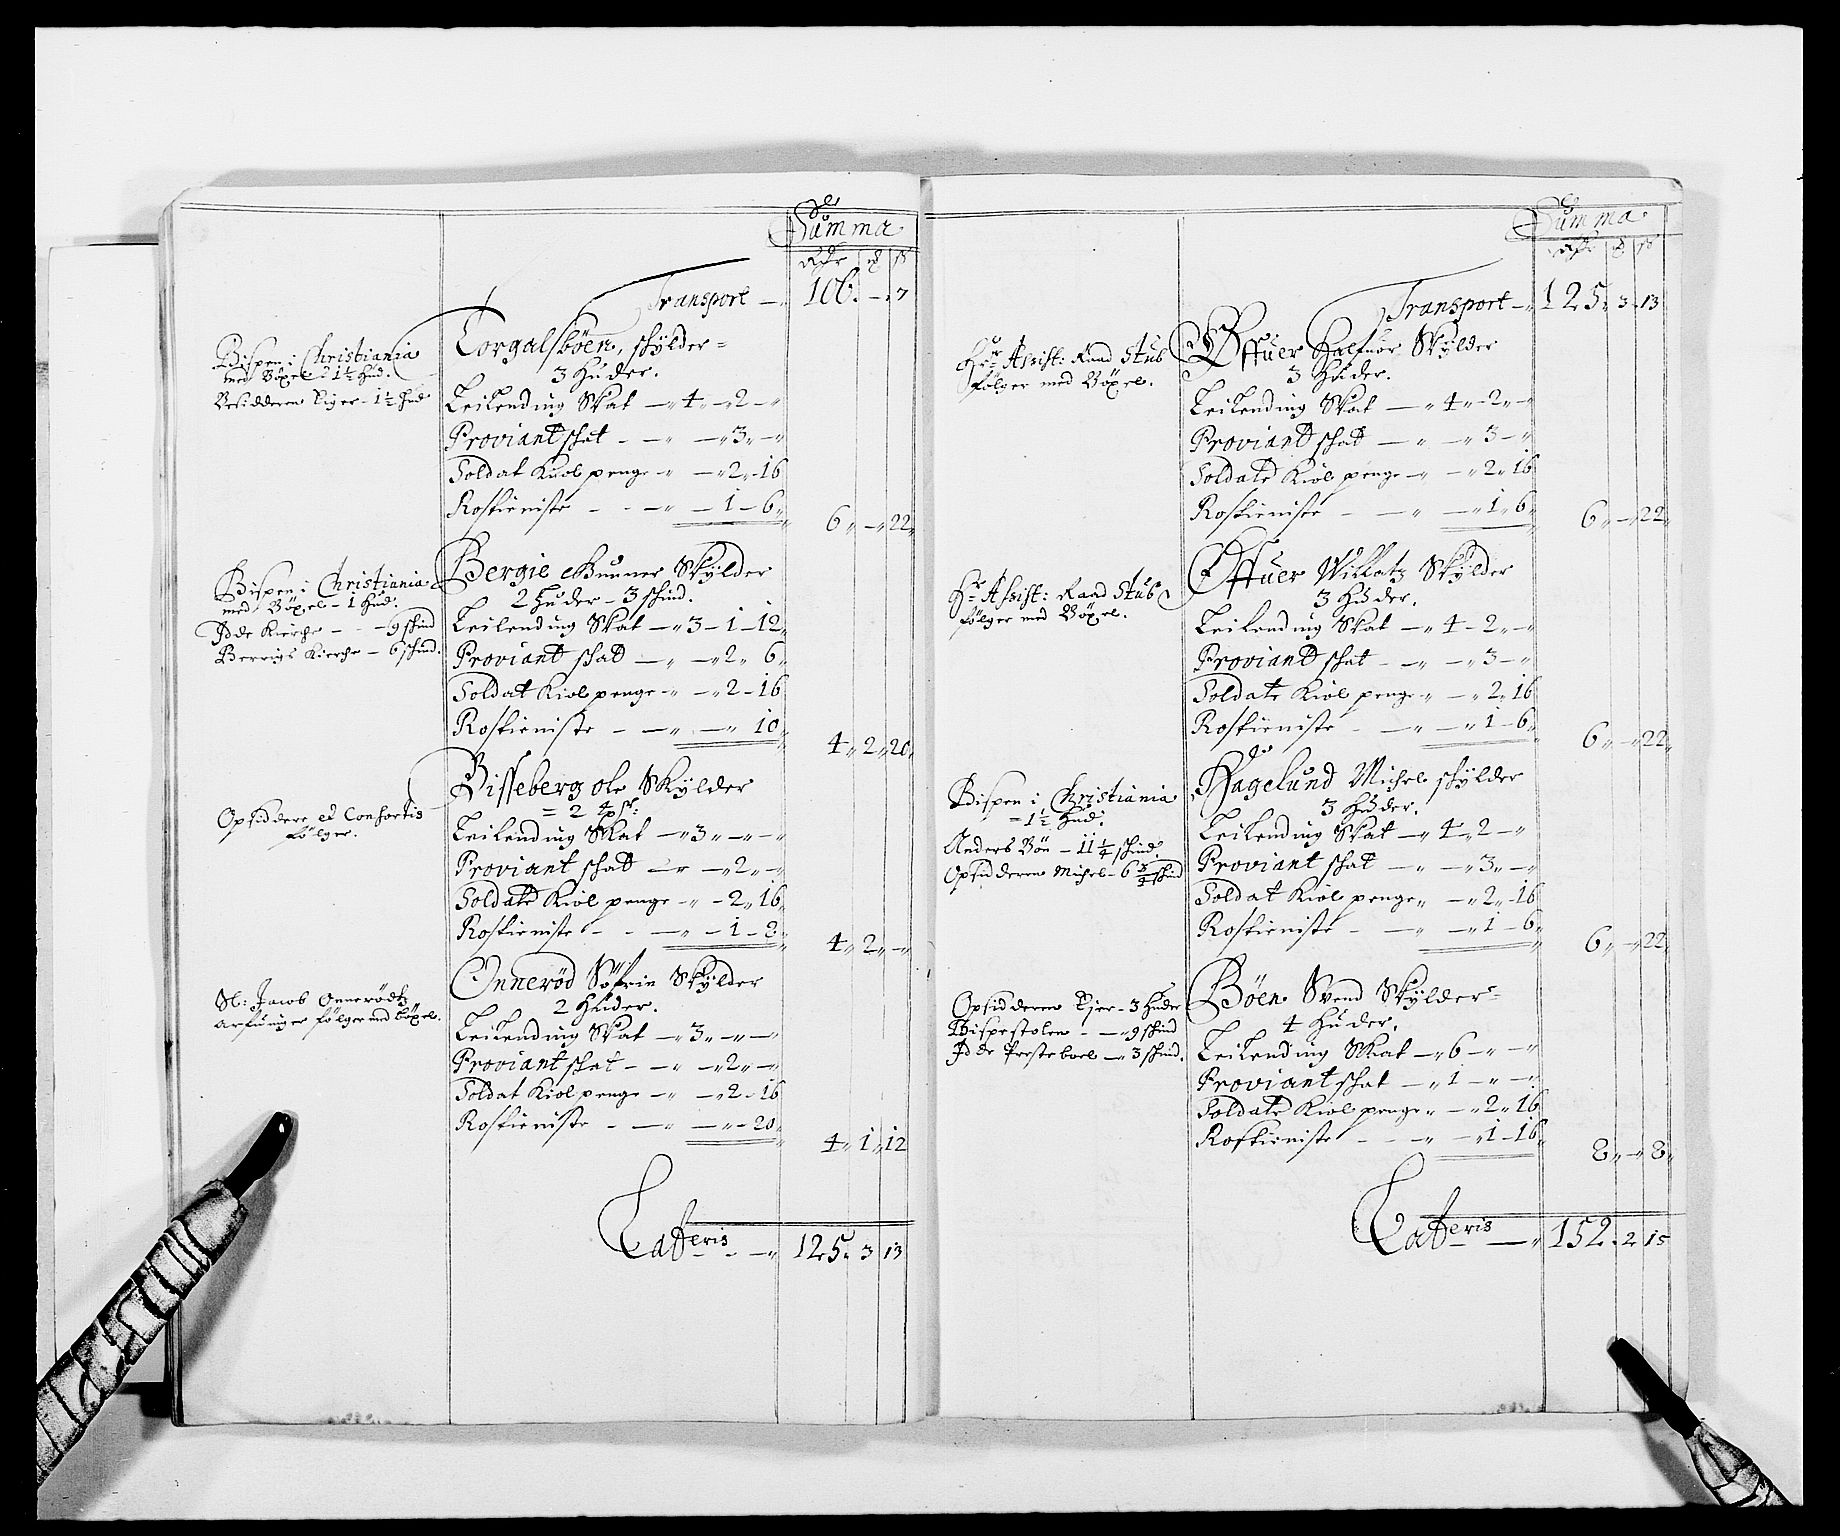 Summa
Rdr | ₰ | ß
Transport — 106 „ — „ 7
Bispen i Christiania
med Böxel - 1½ hud.
Besidderen Eiger - 1½ hud
Torgalsböen, skylder =
3 Huder.
Leilending Skat — „ 4 „ - 2 - „
Proviant skat - — „ — „ 3 „ - „
Soldat Kiol penge - „ — „ 2 „ - 16
Rostieniste - - — „ — 1 — 6 „
6 „ — „ 22 „
Bispen i Christiania
med Böxel - 1 Hud.
Idde Kierche - - „ 9 skind
Berrigs Kierche - 6 skind.
Bergie Gunner Skylder
2 Huder - 3 skind.
Leilending Skat — „ 3 — 1 — 12 „
Proviant skat — „ — „ 2 „ 6 „
Soldat Kiol penge - „ — „ 2 - 16
Rostieniste - — „ — „ 10 „
4 „ 2 „ 20 „
Opsiddere et Consortis
følger.
Bisseberg Ole Skylder
= 2
Leilending Skat — „ 3 „ — „ — „
Proviant skat — „ — „ 2 „ — „
Soldate Kiol penge - „ — 2 „ 16 „
Rostieniste - - — „ — 1 — 8 „
4 „ 2 „ — „
Sl: Jacob Onnerödtz
arfuinger følger med böxel.
Onnerød Söfrin Skylder
2 Huder.
Leilending Skat — „ 3 „ — „ — „
Proviant skat - — „ — „ 2 „ — „
Soldat Kiol penge - „ — „ 2 - 16
Rostieniste - — „ — „ - 20 „
4 „ 1 „ 12
Latteris - - — „ 125 „ 3 | 13
Summa
Rdr | ₰ | ß
Transport — „ 125 „ 3 „ 13
Hr: Assist: Raad Stub
følger med Böxel.
Øffuer Halfuor Skylder
3 Huder.
Leilending Skat — „ 4 „ - 2 „ - „
Proviant skat — „ — „ 3 — „
Soldate Kiol penge - „ — „ 2 „ 16
Rostieniste - — „ — „ 1 „ 6 „
6 „ — „ 22 „
Hr: Assist: Raad Stub
følger med Böxel.
Øffuer Willatz Skylder
3 Huder.
Leilending Skat — „ 4 - 2 „ - „
Proviant skat - — „ — „ 3 — „
Soldate Kiol penge „ — „ 2 „ 16
Rostieniste - — „ — „ 1 — 6 „
6 „ — „ 22 „
Bispen i Christiania
= 1½ Hud.
Anders Bön - 11¼ skind.
Opsidderen Michel - 6¾ skind
Hagelund Michel skylder
3 Huder.
Leilending Skat — „ 4 „ 2 — „
Proviant skat — „ — „ 3 „ — „
Soldat Kiol penge „ — „ 2 „ - 16
Rostieniste - — „ — „ 1 — 6 „
6 „ — „ 22 „
Opsidderen Ejer - 3 Huder
Bispestolen - — „ 9 skind
Idde Presteboel — „ 3 skind.
Böen Svend Skylder =
4 Huder.
Leilending Skat — „ 6 — „ — „
Proviant skat — „ 1 — „ — „
Soldate Kiol penge „ — „ 2 „ 16
Rostieniste - - „ — „ 1 — 16 „
8 „ — „ 8 „
Latteris — — „ 152 „ 2 | 15